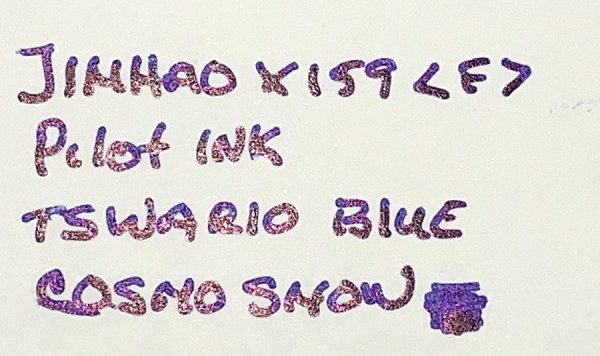 JINHAO X159 <F>
Pilot INK
TSWARIO BLUE
COSMO SNOW